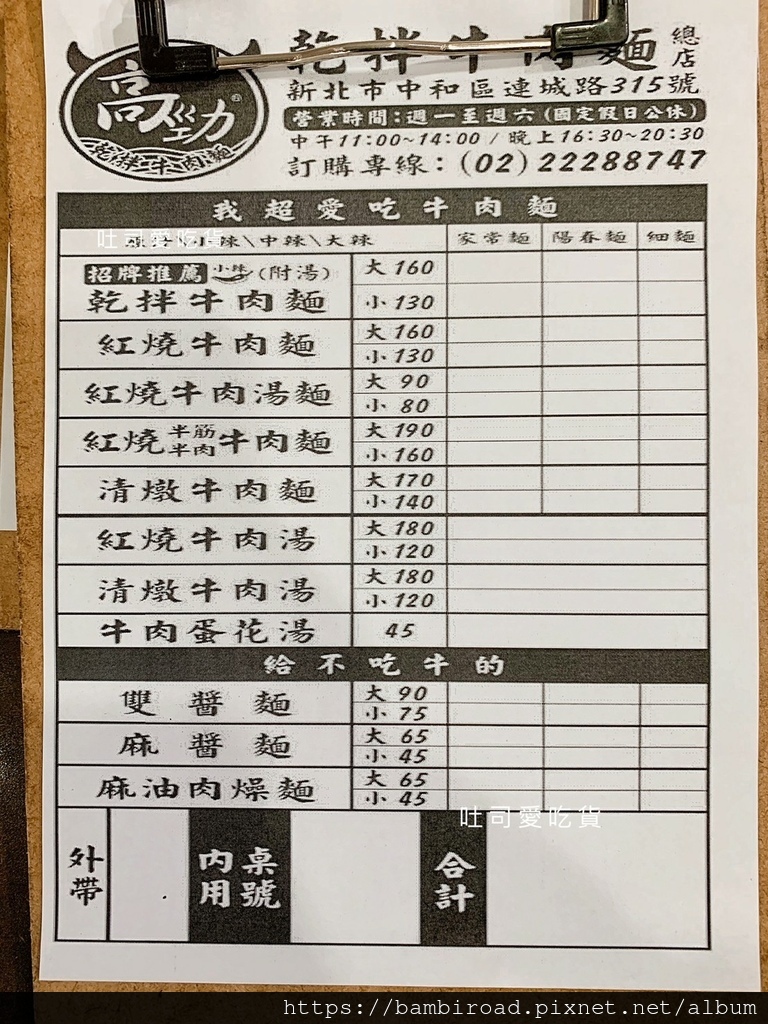 高人ㄍㄧㄥ功®
乾拌牛肉麵
乾拌牛肉麵 總店
新北市中和區連城路315號
營業時間:週一至週六(國定假日公休)
中午11:00~14:00 / 晚上16:30~20:30
訂購專線:(02)22288747
我超愛吃牛肉麵
小辣\中辣\大辣 家常麵 陽春麵 細麵
吐司愛吃貨
招牌推薦 小辣 (附湯) 大 160
乾拌牛肉麵 小 130
紅燒牛肉麵 大 160
小 130
紅燒牛肉湯麵 大 90
小 80
紅燒半筋半肉牛肉麵 大 190
小 160
清燉牛肉麵 大 170
小 140
紅燒牛肉湯 大 180
小 120
清燉牛肉湯 大 180
小 120
牛肉蛋花湯 45
給不吃牛的
雙醬麵 大 90
小 75
麻醬麵 大 65
小 45
麻油肉燥麵 大 65
小 45
吐司愛吃貨
外帶 內用 桌號 合計
https://bambiroad.pixnet.net/album